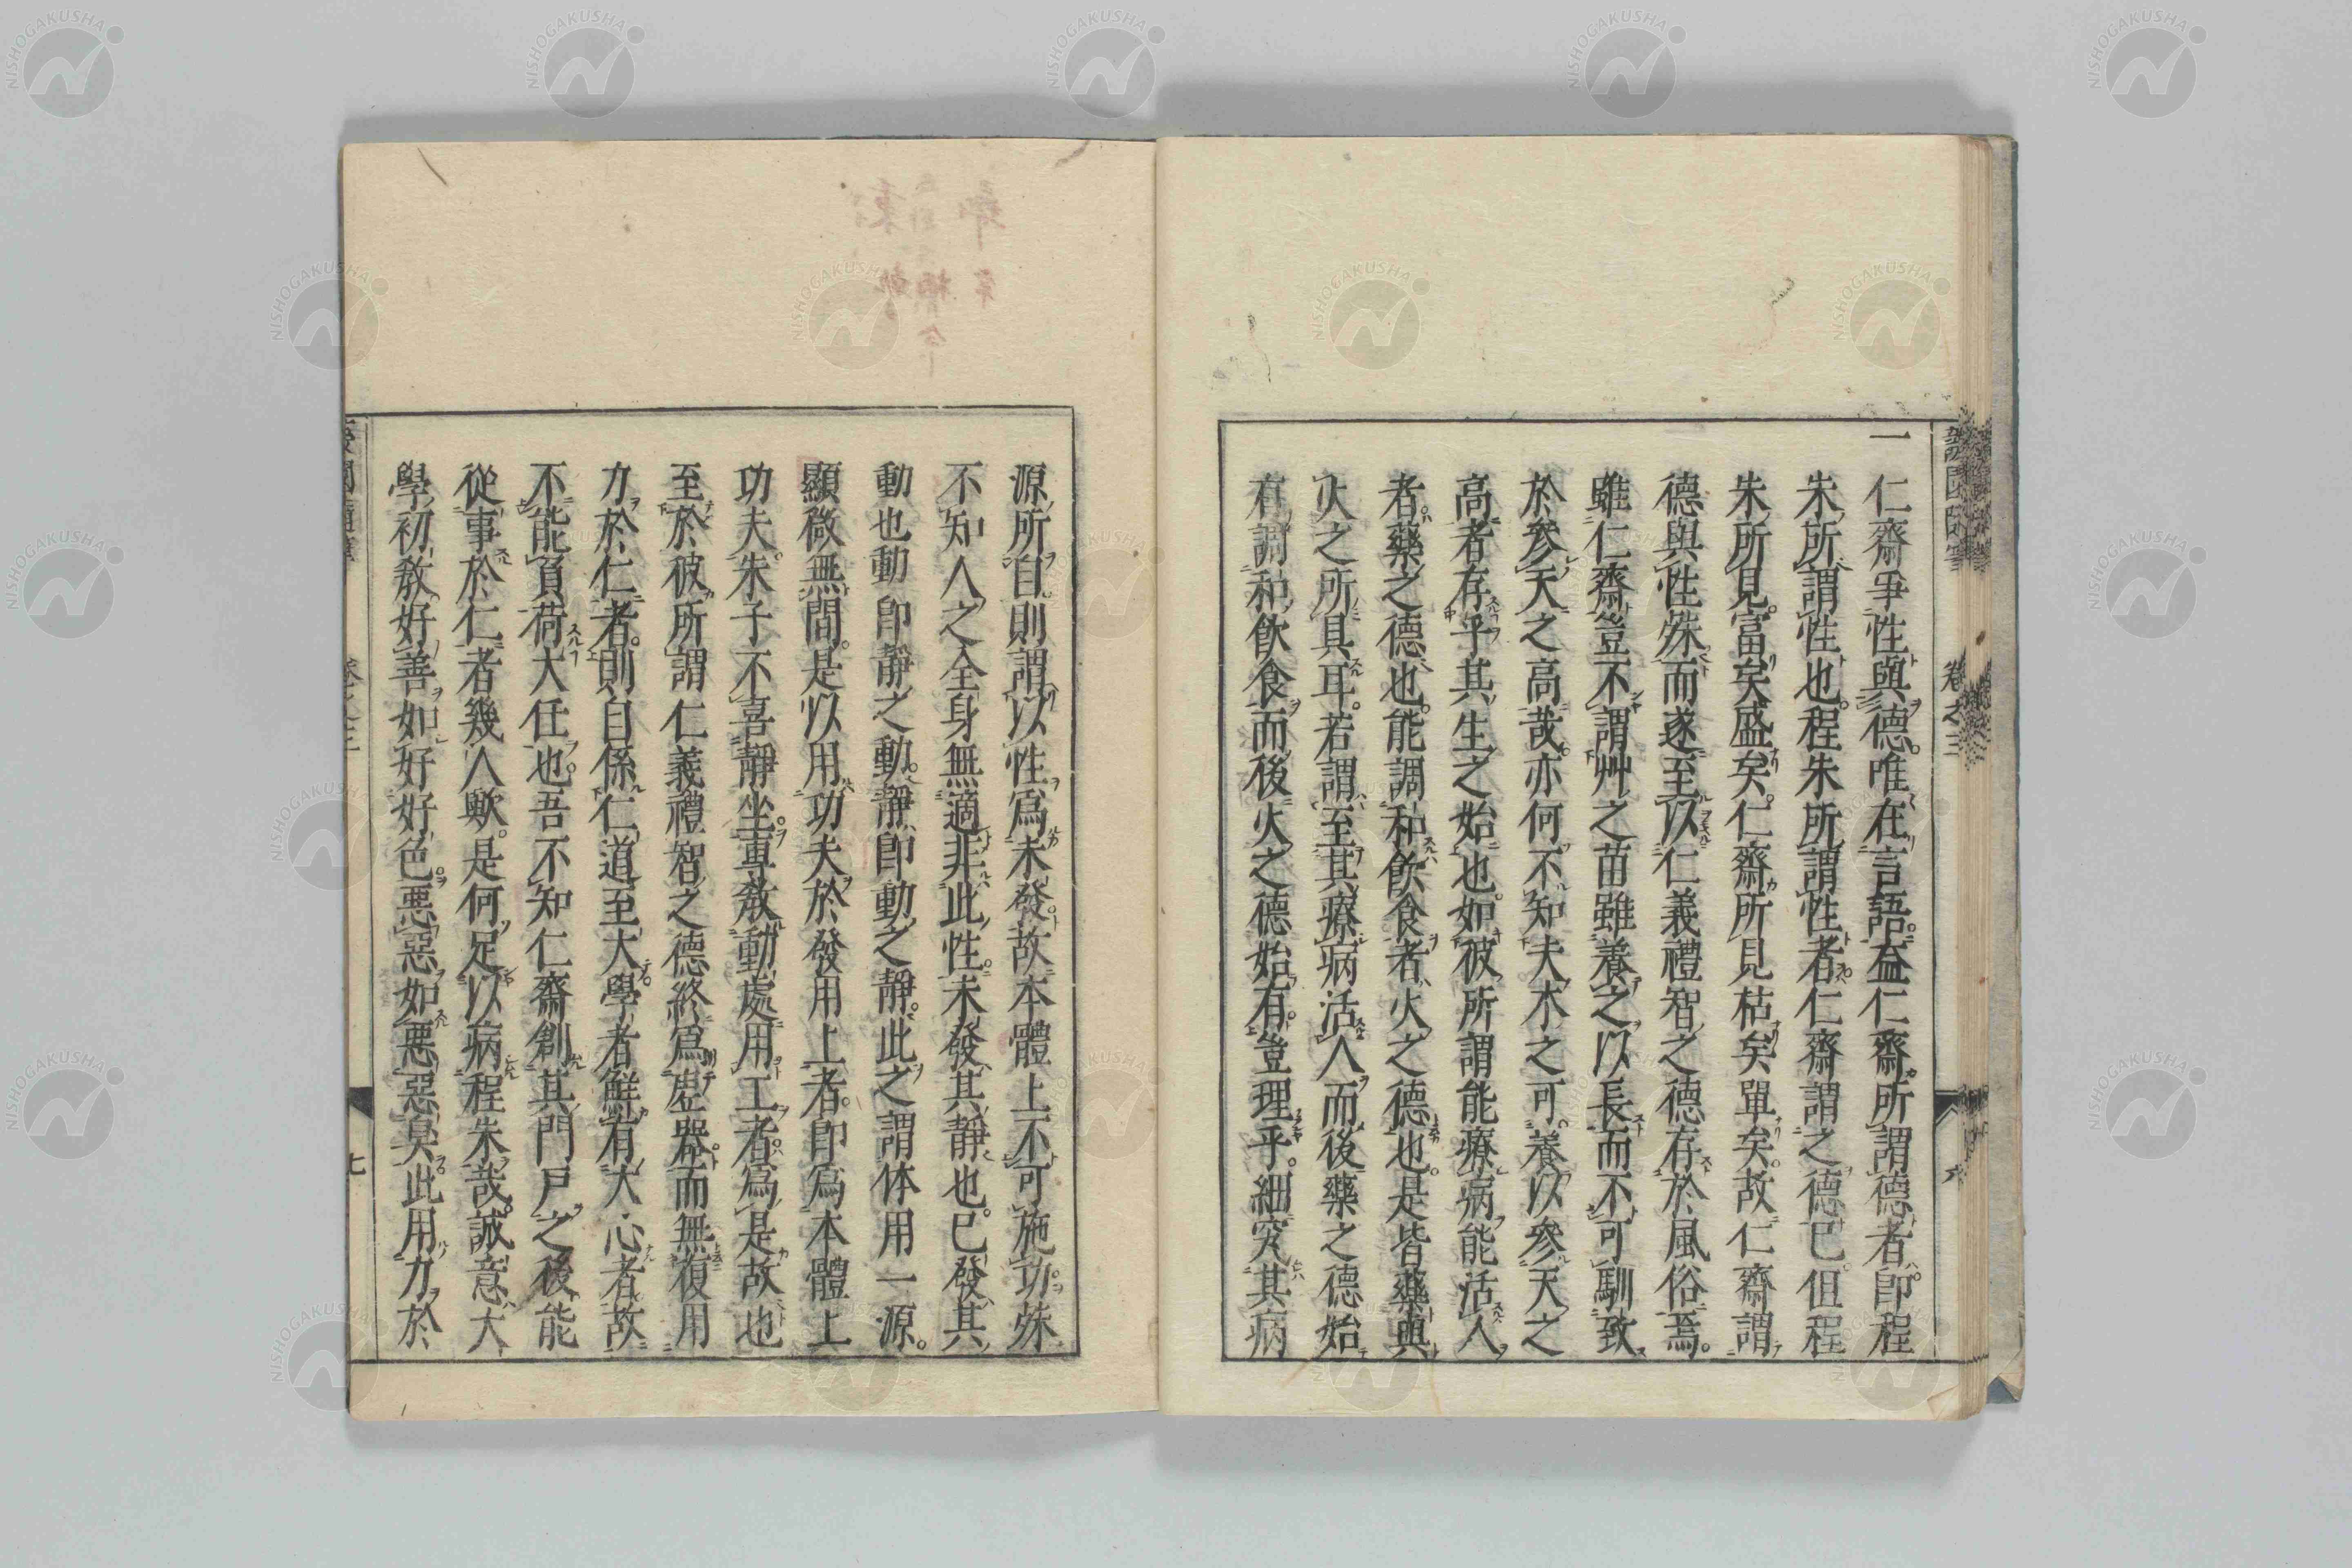 一
仁齋爭性與德唯在言語益仁齋所謂德者即程
朱所謂性也程朱所謂性者仁齋謂之德已但程
朱所見富矣盛矣仁齋所見枯矣單矣故仁齋謂
德與性殊而遂至以仁義禮智之德存於風俗焉
雖仁齋豈不謂艸之苗雖養之以長而不可馴致
於參天之高哉亦何不知夫木之可養以參天之
高者存乎其生之始也如彼所謂能療病能活人
者藥之德也能調和飲食者火之德也是皆藥與
火之所具耳若謂至其療病活人而後藥之德始
有調和飲食而後火之德始有豈理乎細究其病
卷之三
六
源所自則謂以性爲未發故本體上不可施功殊
不知人之全身無適非此性未發其靜也已發其
動也動即靜之動靜即動之靜此之謂体用一源
顯微無間是以用功夫於發用上者即爲本體上
功夫朱子不喜靜坐專教動處用工者爲是故也
至於彼所謂仁義禮智之德終爲虛器而無復用
力於仁者則自係仁道至大學者鮮有大心者故
不能負荷大任也吾不知仁齋創其門戶之後能
從事於仁者幾人歟是何足以病程朱哉誠意大
學初教好善如好好色惡惡如惡惡臭此用力於
七
NISHOGAKUSHA